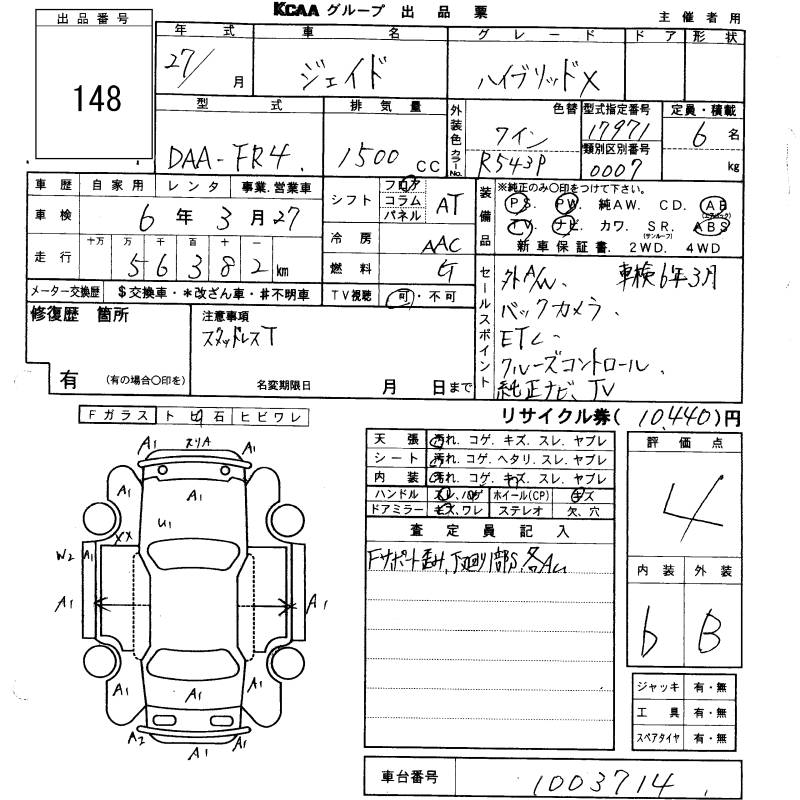 KCAA グループ 出品票
主催者用
出品番号
148
年式 車名 グレード ドア 形状
27/ 月 ジェイド ハイブリッドX
型式 排気量
DAA-FR4 1500 CC
外装色 カラーNo. 色替
ワイン
R543P
型式指定番号
17971
類別区別番号
0007
定員・積載
6 名
kg
車歴 自家用 レンタ 事業.営業車
車検 6 年 3 月 27
走行 十万 万 千 百 十 一
5 6 3 8 2 km
シフト フロア コラム パネル AT
冷房 AAC
燃料 ガ
装備品
※純正のみ〇印をつけて下さい。
PS. PW. 純AW. CD. AB (エアバック)
TV. ナビ. カワ. SR. (サンルーフ) ABS
新車保証書. 2WD. 4WD
メーター交換歴 $交換車・*改ざん車・#不明車
TV視聴 可・不可
セールスポイント
外AW、 車検6年3月
バックカメラ、
ETC、
クルーズコントロール、
純正ナビ、TV
修復歴 箇所
有 (有の場合〇印を)
注意事項
スタッドレスT
名変期限日 月 日まで
リサイクル券( 10,440 )円
Fガラス トビ石 ヒビワレ
A1 スリA A1
A1 A1 A1
U1
XX
W2 A1 A1
A1 A1
A1 A1 A1
A2 A1 A1
天張 汚れ. コゲ. キズ. スレ. ヤブレ
シート 汚れ. コゲ. ヘタリ. スレ. ヤブレ
内装 汚れ. コゲ. キズ. スレ. ヤブレ
ハンドル スレ、ハゲ ホイール(CP) キズ
ドアミラー キズ、ワレ ステレオ 欠、穴
査定員記入
Fサポート歪み、下廻り部S、各AU
評価点
4
内装 外装
b B
ジャッキ 有・無
工具 有・無
スペアタイヤ 有・無
車台番号 1003714